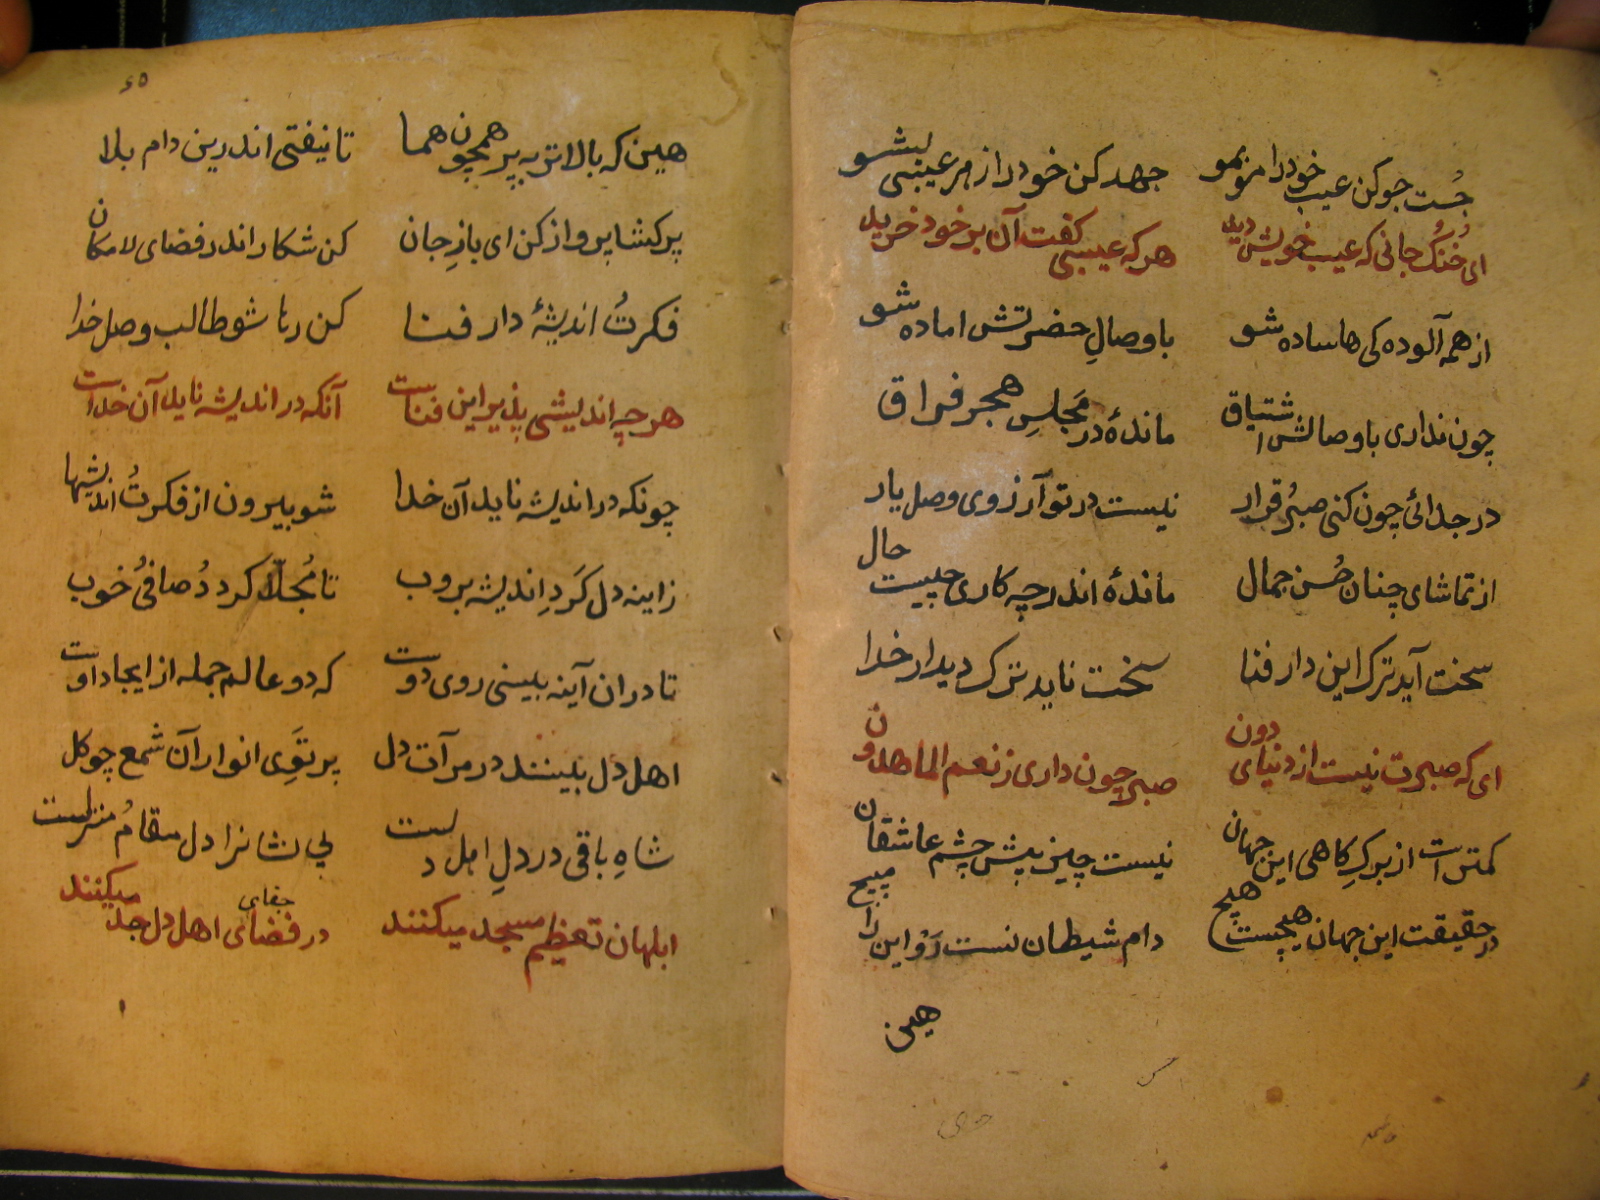 جُست جو کن عیب خود را مو بمو    جهد کن خود را ز هر عیبی بشو
ای خُنُک جانی که عیب خویش دید    هر که عیبی گفت آن بر خود خرید
از همه آلوده کی ها ساده شو    با وصالِ حضرتش اماده شو
چون نداری با وصالش اشتیاق    ماندهٔ در مَجلسِ هجر فراق
در جدائی چون کنی صبرُ قرار    نیست در تو آرزوی وصل یار
از تماشای چنان حُسن جمال    ماندهٔ اندر چه کاری چیست حال
سخت آید ترک این دار فنا    سخت ناید ترک دیدار خدا
ای که صبرت نیست از دنیای دون    صبر چون داری ز نعم الماهدون
کمتر است از برکِ کاهی این جهان    نیست چیز پیش چشم عاشقان
در حقیقت این جهان هیچست هیچ    دام شیطان نست رَوْ این را مپیچ
هین
۶۵
هین که بالاتر بپر همچون هما    تا نیفتی اندرین دام بلا
پر کشا پرواز کن ای بازِ جان    کن شکار اندر فضای لامکان
فکرتُ اندیشهٔ دار فنا    کن رها شو طالب وصل خدا
هر چه اندیشی پذیر این فناست    آنکه در اندیشه ناید آن خداست
چونکه در اندیشه ناید آن خدا    شو بیرون از فکرتُ اندیشها
زاینه دل کَردِ اندیشه بروب    تا مُجلّا کردد صافیُ خوب
تا در ان آینه بینی روی دوست    که دو عالم جمله از ایجاد اوست
اهل دل بینند در مرآت دل    پرتوَی انوار آن شمع چو کل
شاهِ باقی در دلِ اهل دلست    بی نشانرا دل مقامُ منزلست
ابلهان تعظیم مسجد میکنند    در فضای جفای اهل دل جد میکنند